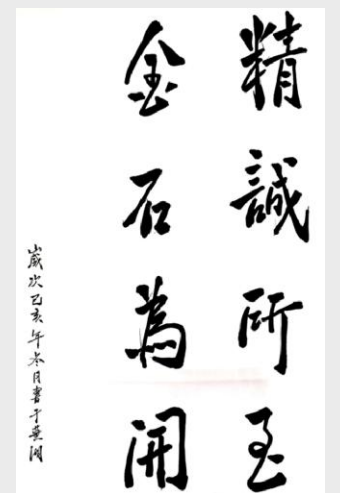 精誠所至
金石為開
歲次己亥年冬月書于蕪湖